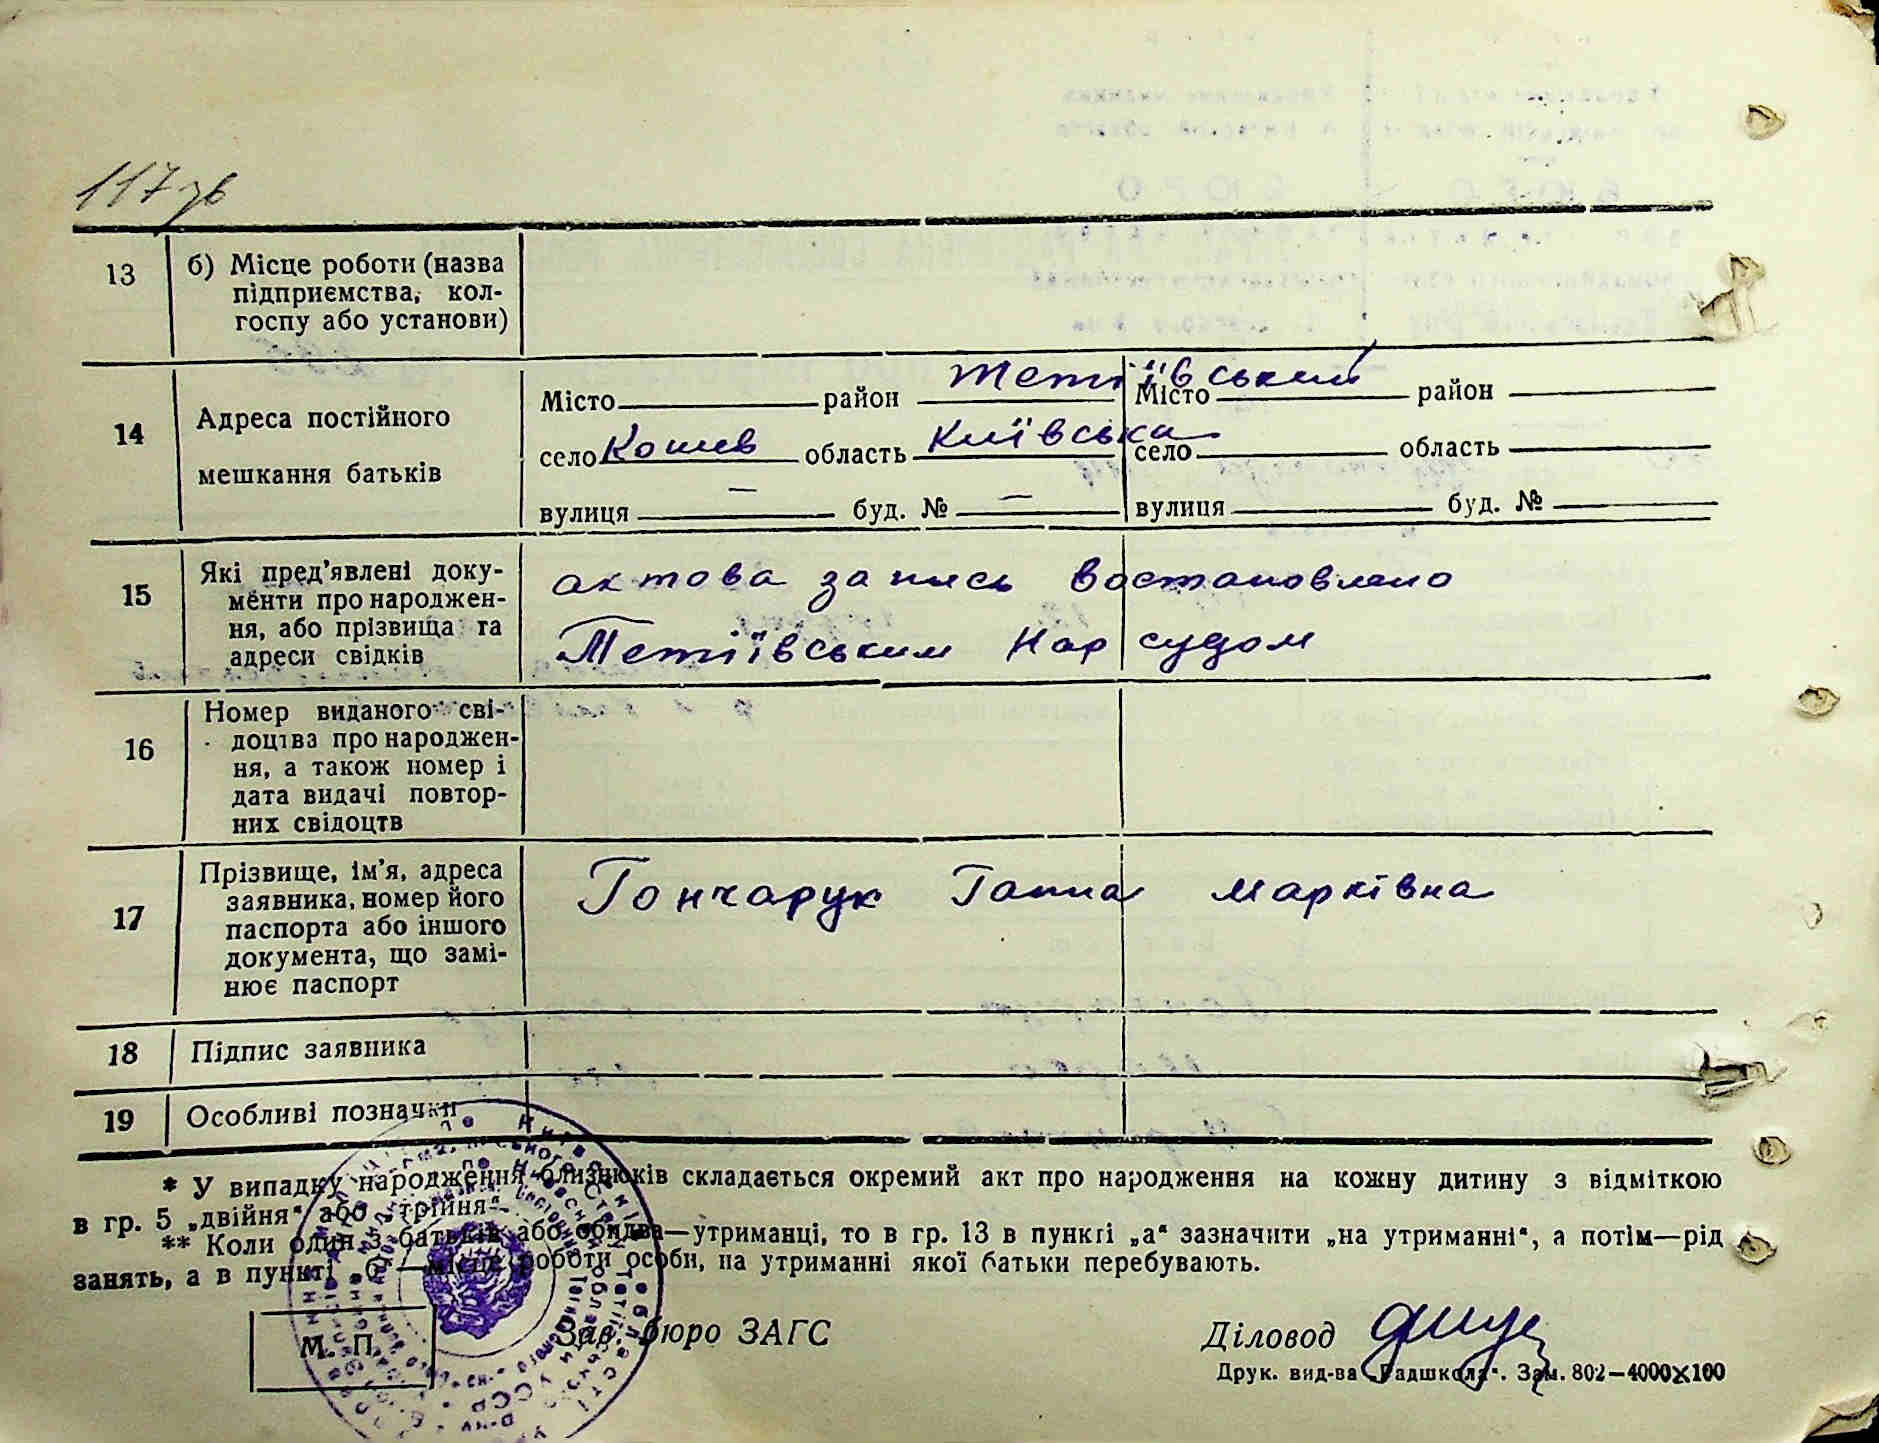 117 зв
13 б) Місце роботи (назва
підприємства, кол-
госпу або установи)
14 Адреса постійного
мешкання батьків
Місто район Тетіївський Місто район
село Кошев область Київська село область
вулиця — буд. № — вулиця буд. №
15 Які пред’явлені доку-
менти про народжен-
ня, або прізвища та
адреси свідків
актова запись востановлено
Тетіївським Нар судом
16 Номер виданого сві-
доцтва про народжен-
ня, а також номер і
дата видачі повтор-
них свідоцтв
17 Прізвище, ім’я, адреса
заявника, номер його
паспорта або іншого
документа, що замі-
нює паспорт
Гончарук Ганна Марківна
18 Підпис заявника
19 Особливі позначки
* У випадку народження близнюків складається окремий акт про народження на кожну дитину з відміткою
в гр. 5 „двійня“ або „трійня“.
** Коли один з батьків або обидва—утриманці, то в гр. 13 в пункті „а“ зазначити „на утриманні“, а потім—рід
занять, а в пункті „б“—місце роботи особи, на утриманні якої батьки перебувають.
М. П. Зав. бюро ЗАГС Діловод
Друк. вид-ва „Радшкола“. Зам. 802—4000×100